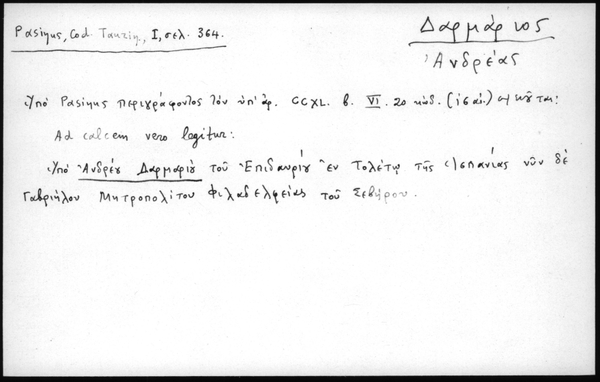 Pasinus, Cod. Taurin., I, σελ. 364.
Δαρμάριος
Ἀνδρέας
Ὑπὸ Pasinus περιγράφοντος τὸν ὑπ' ἀρ. CCXL. b. VI. 20 κώδ. (ις αἰ.)
Ad calcem vero legitur:
Ὑπὸ Ἀνδρέου Δαρμαρίου τοῦ Ἐπιδαυρίου ἐν Τολέτῳ τῆς Ἱσπανίας νῦν δὲ
Γαβριήλου Μητροπολίτου Φιλαδελφείας τοῦ Σεβήρου.